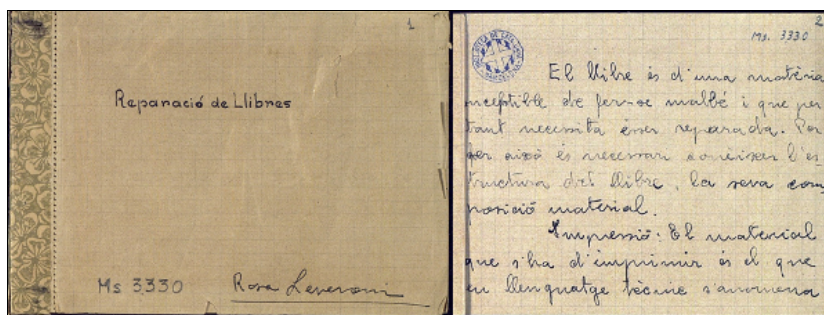 1
Reparació de Llibres
Ms 3330
Rosa Leveroni
2
Ms. 3330
BIBLIOTECA DE CATALUNYA
BARCELONA
El llibre és d'una matèria
susceptible de fer-se malbé i que per
tant necessita ésser reparada. Per
fer això és necessari conèixer l'es-
tructura del llibre, la seva com-
posició material.
Impressió: El material
que s'ha d'imprimir és el que
en llenguatge tècnic s'anomena